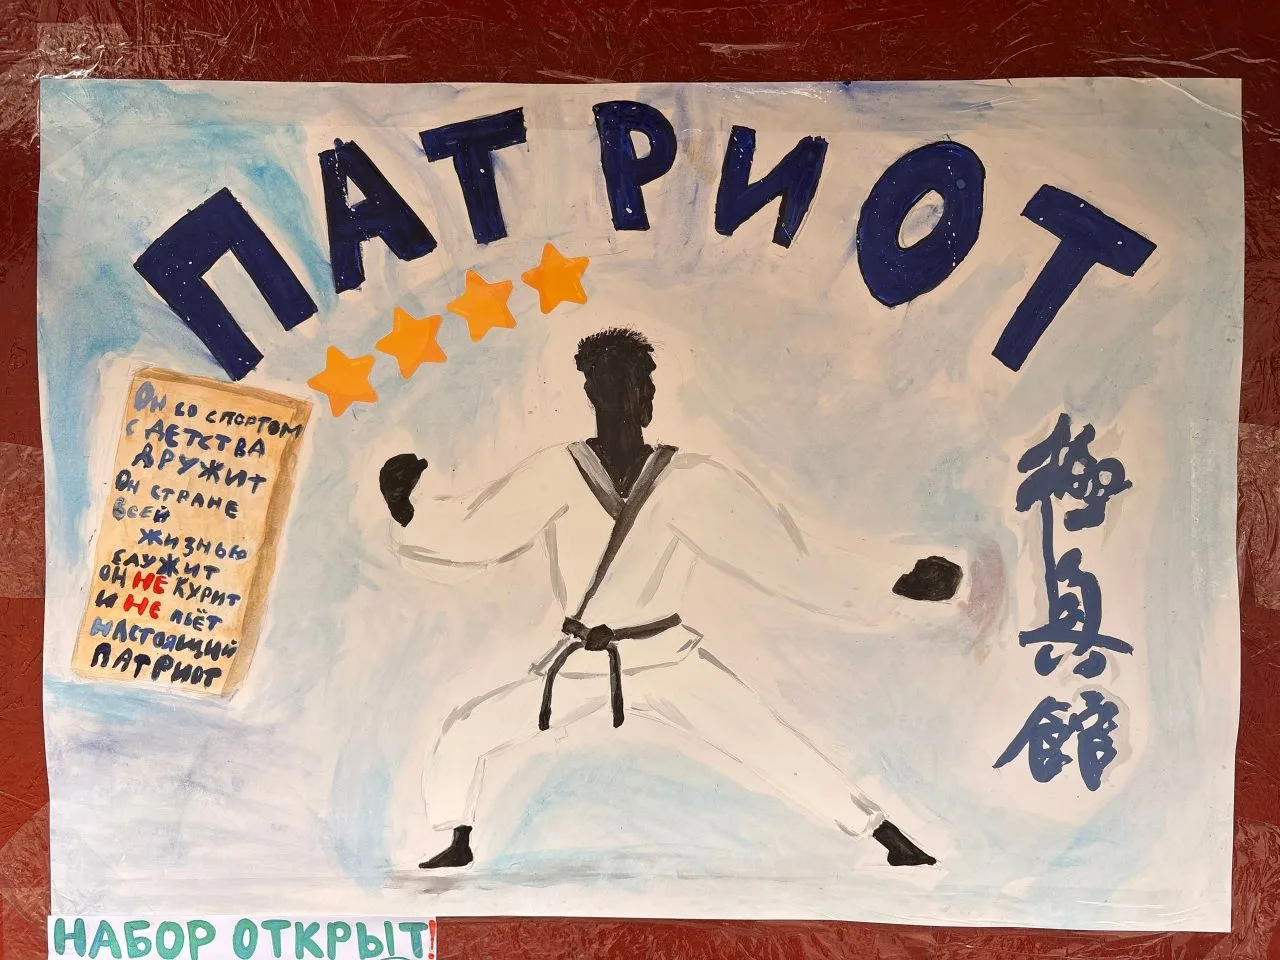 ПАТРИОТ
Он со спортом
с ДЕТСТВА
ДРУЖИТ
Он СТРАНЕ
ВСЕЙ
ЖИЗНЬЮ
СЛУЖИТ
ОН НЕ КУРИТ
И НЕ пьёт
НАСТОЯЩИЙ
ПАТРИОТ
極真館
НАБОР ОТКРЫТ!